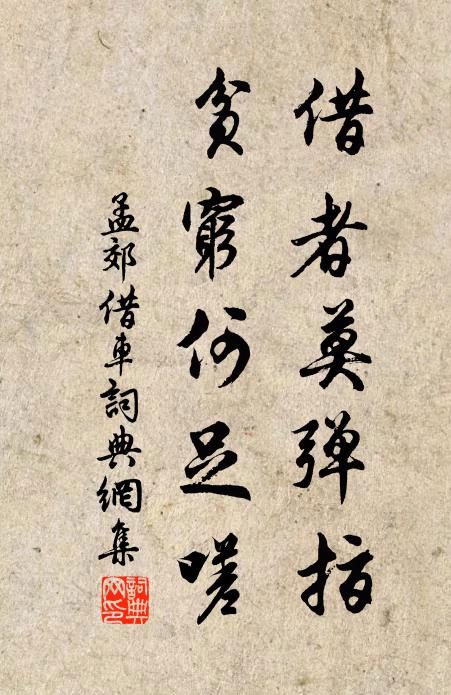 借者莫弹指
貧窮何足嗟
孟郊借車詞典網集
詞典
网印